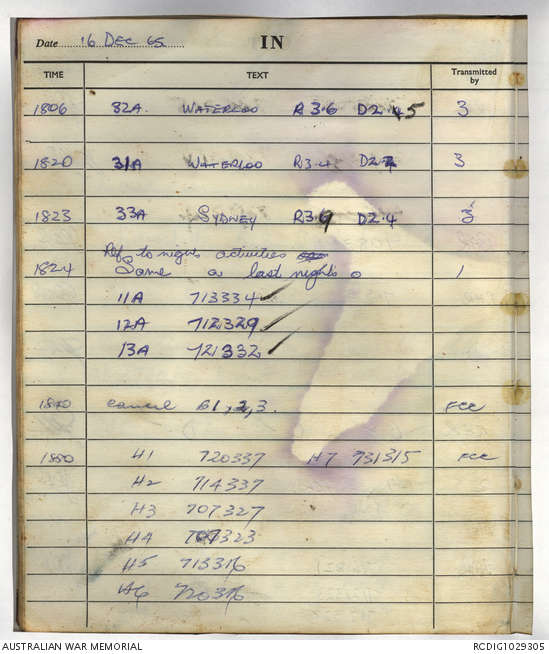 Date 16 DEC 65 IN
TIME TEXT Transmitted by
1806 82A. WATERLOO R3.6 D2.45 3
1820 31A WATERLOO R3.4 D2.2 3
1823 33A SYDNEY R3.9 D2.4 3
Ref to night activities
1824 Same a last nights o 1
11A 713334
12A 712329
13A 721332
1840 cancel B1,2,3. FCC
1850 H1 720337 H7 731315 FCC
H2 714337
H3 707327
H4 707323
H5 713316
H6 720316
AUSTRALIAN WAR MEMORIAL RCDIG1029305